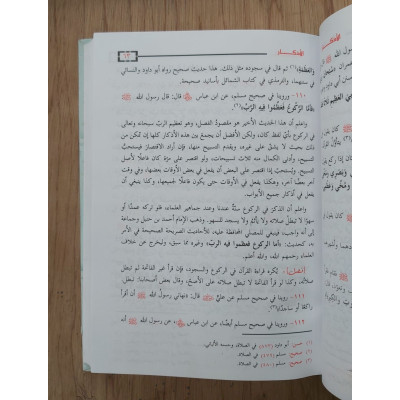 الأذكار
وَالعَظَمَةِ»(١) ثم قال في سجوده مثل ذلك. هذا حديث صحيح رواه أبو داود والنسائي
في سننهما، والترمذي في كتاب الشمائل بأسانيد صحيحة.
١١٠- وروينا في صحيح مسلم، عن ابن عباس قال: قال رسول الله ﷺ
«فَأَمَّا الرُّكوعُ فَعَظِّمُوا فيه الرَّبَّ»(٢).
واعلم أن هذا الحديث الأخير هو مقصودُ الفصل، وهو تعظيم الرب سبحانه وتعالى
في الركوع بأيّ لفظ كان، ولكن الأفضل أن يجمع بين هذه الأذكار كلها إن تمكن من
ذلك بحيث لا يشقّ على غيره، ويقدم التسبيح منها، فإن أراد الاقتصارَ فيستحبُّ
التسبيح، وأدنى الكمال منه ثلاث تسبيحات، ولو اقتصر على مرّة كان فاعلاً لأصل
التسبيح. ويُستحبّ إذا اقتصر على البعض أن يفعل في بعض الأوقات بعضها، وفي وقت
آخر بعضاً آخر، وهكذا يفعل في الأوقات حتى يكون فاعلاً لجميعها، وكذا ينبغي أن
يفعل في أذكار جميع الأبواب.
واعلم أن الذكر في الركوع سنّة عندنا وعند جماهير العلماء، فلو تركه عمداً أو
سهواً لا تبطل صلاته ولا يأثم ولا يسجد للسهو. وذهب الإمام أحمد بن حنبل وجماعة
إلى أنه واجب، فينبغي للمصلي المحافظة عليه، للأحاديث الصريحة الصحيحة في الأمر
به، كحديث: «أما الركوع فعظموا فيه الربّ» وغيره مما سبق، وليخرج عن خلاف
العلماء رحمهم الله، والله أعلم.
[فصل]: يُكره قراءة القرآن في الركوع والسجود، فإن قرأ غير الفاتحة لم تبطل
صلاته، وكذا لو قرأ الفاتحة لا تبطل صلاته على الأصحّ، وقال بعض أصحابنا: تبطل.
١١١- وروينا في صحيح مسلم عن عليّ قال: «نهاني رسولُ الله ﷺ أن أقرأ
راكعاً أو ساجداً»(٣).
١١٢- وروينا في صحيح مسلم أيضاً، عن ابن عباس، عن رسول الله ﷺ أنه
(١) حسن: أبو داود (٨٧٣) في الصلاة، وصححه الألباني.
(٢) صحيح: مسلم (٤٧٩) في الصلاة.
(٣) صحيح: مسلم (٤٨٠) في الصلاة.